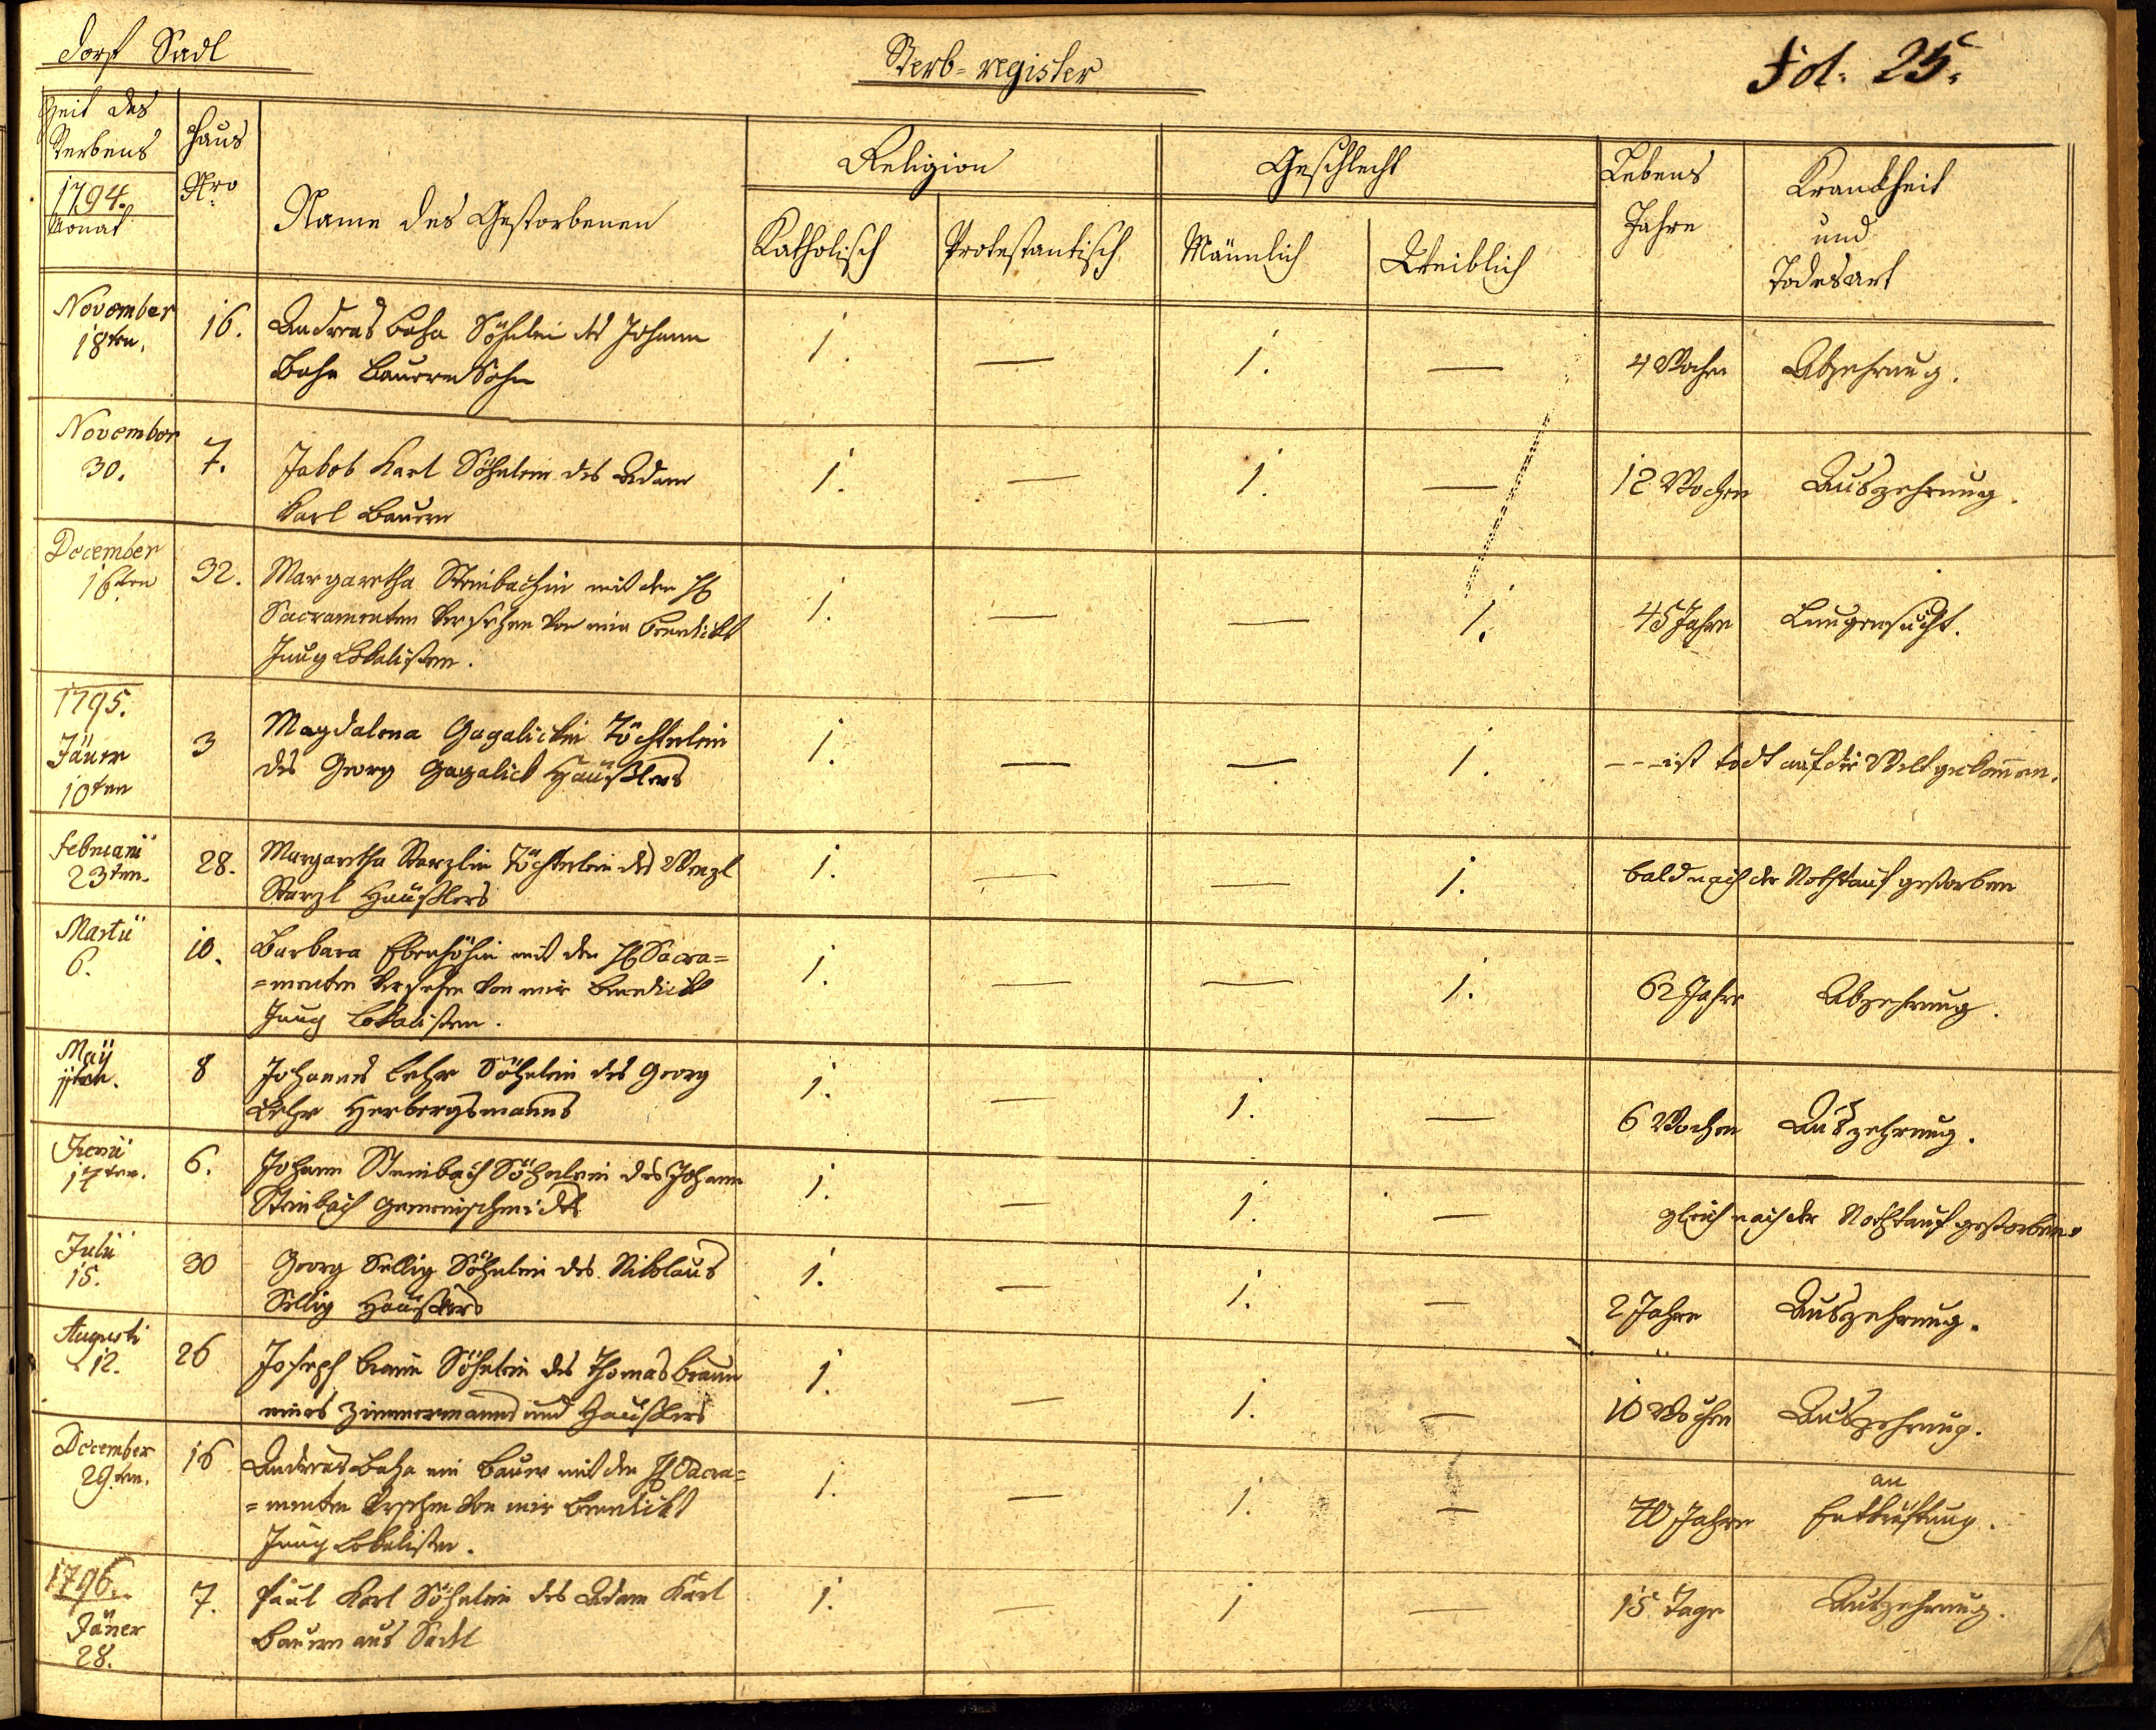 Dorf Sadl
Sterb-register
Fol. 25.
Zeit des
Sterbens
1794.
Monat
Haus
Nro
Name des Gestorbenen
Religion
Katholisch Protestantisch
Geschlecht
Männlich Weiblich
Lebens
Jahre
Krankheit
und
Todesart
November
18ten.
16. Andreas Baha Söhnlein des Johann
Baha Bauern Sohn
1. — 1. — 4 Wochen Abzehrung.
November
30.
7. Jakob Karl Söhnlein des Adam
Karl Bauern
1. — 1. — 12 Wochen Auszehrung.
December
16ten
32. Margaretha Steinbachin mit den
Sacramenten versehen von mir Benedikt
Jung Lokalisten.
1. — — 1. 45 Jahre Lungensucht.
1795.
Jäner
10ten
3 Magdalena Gagalickin Töchterlein
des Georg Gagalick Häußlers
1. — — 1. --- ist todt auf die Welt gekommen.
Februarii
23ten.
28. Margaretha Sterzlin Töchterlein des Wenzl
Sterzl Häußlers
1. — — 1. bald nach der Nothtauf gestorben
Martii
6.
10. Barbara Ebenhöhin mit den Sacra=
=menten versehen von mir Benedikt
Jung Lokalisten.
1. — — 1. 62 Jahre Abzehrung.
Maÿ
8 Johannes Lehr Söhnlein des Georg
Lehr Herbergsmanns
1. — 1. — 6 Wochen Auszehrung.
Junii
17ten.
6. Johann Steinbach Söhnlein des Johann
Steinbach Gemeinschmides
1. — 1. — gleich nach der Nothtauf gestorben.
Julii
15.
30 Georg Sellig Söhnlein des Nikolaus
Sellig Häußlers
1. — 1. — 2 Jahre Auszehrung.
Augusti
12.
26 Joseph Braun Söhnlein des Thomas Braun
eines Zimmermanns und Haußlers
1. — 1. — 10 Wochen Auszehrung.
December
29ten.
16 Andreas Baha ein Bauer mit den Sacra=
=menten versehen von mir Benedikt
Jung Lokalisten.
1. — 1. — 70 Jahre an
Entkräftung.
1796.
Jäner
28.
7. Paul Karl Söhnlein des Adam Karl
Bauern aus Sadl
1. — 1 — 15 Tage Auszehrung.